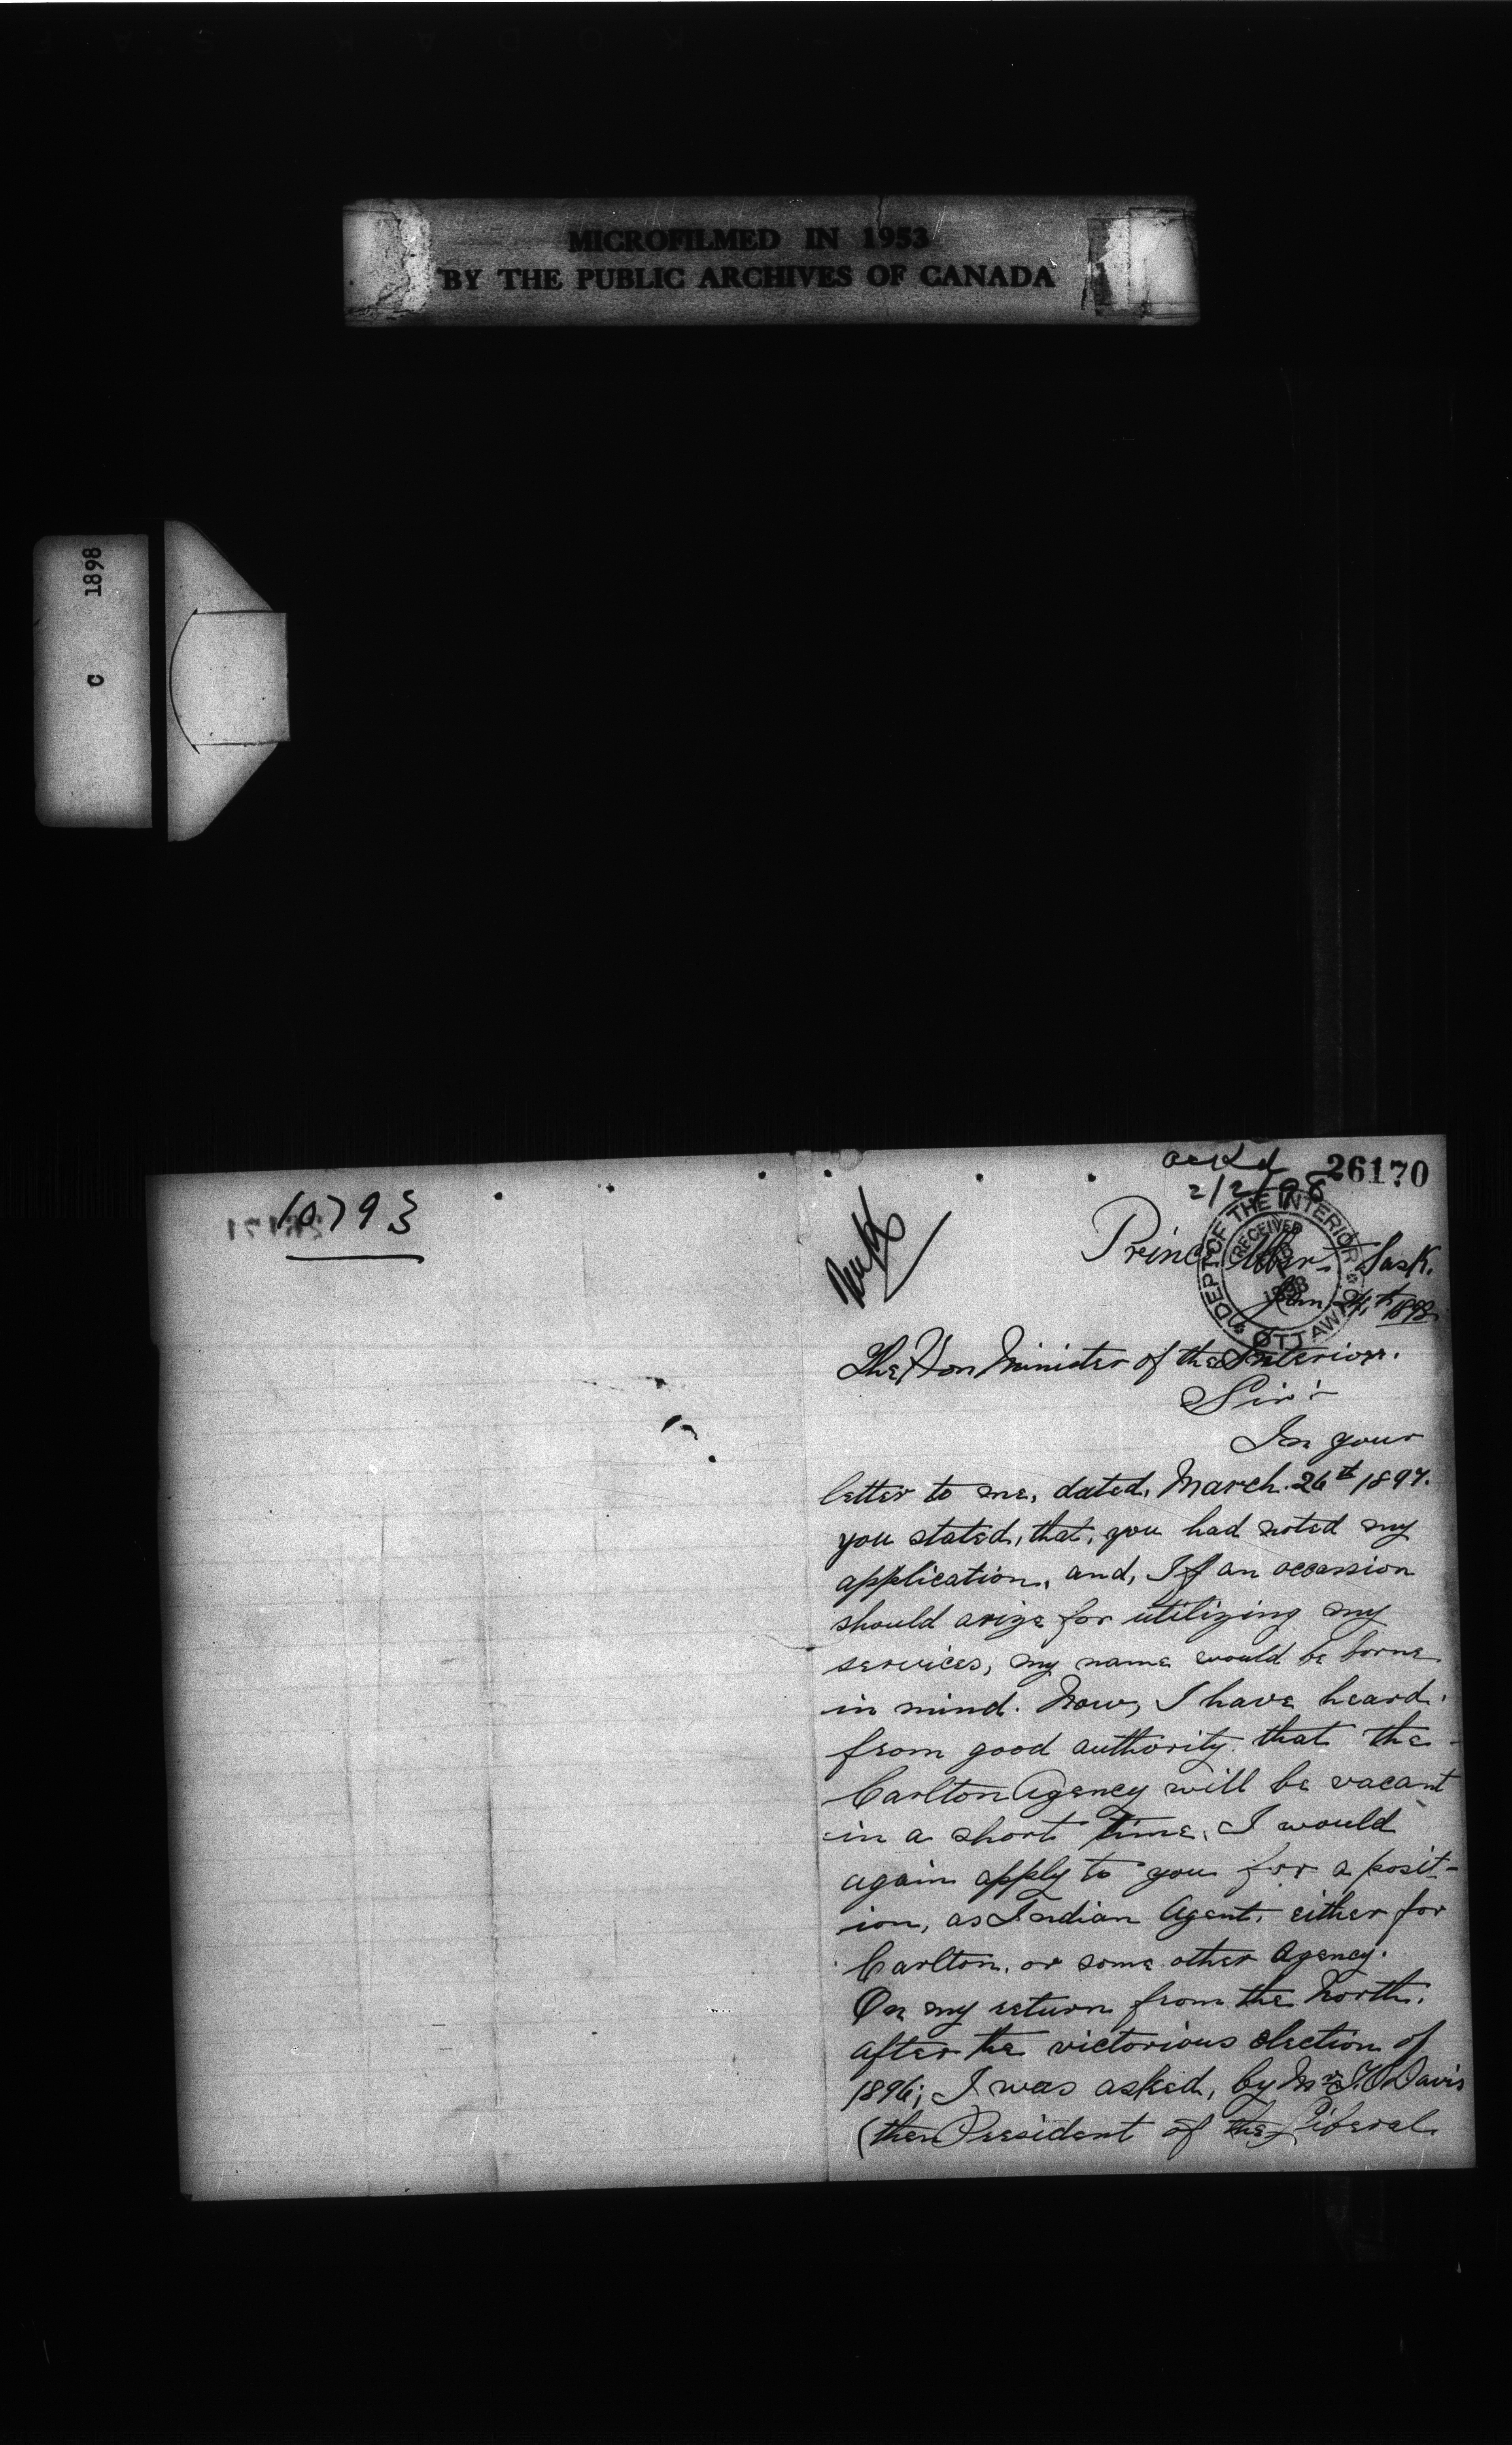 MICROFILMED IN 1953
BY THE PUBLIC ARCHIVES OF CANADA
C 1898
10793
ackd
2/2/98
26170
DEPT. OF THE INTERIOR
RECEIVED
1898
OTTAWA
Prince Albert Sask.
Jan 24th 1898
The Hon Minister of the Interior.
Sir:-
In your
letter to me, dated, March. 26th 1897.
you stated, that, you had noted my
application, and, If an occassion
should arize for utilizing my
services, my name would be borne
in mind. Now, I have heard.
from good authority. that the
Carlton Agency will be vacant
in a short time. I would
again apply to you for a posit-
ion, as Indian Agent, either for
Carlton, or some other Agency.
On my return from the North.
after the victorious election of
1896; I was asked, by Mr T.O Davis
(then President of the Liberal